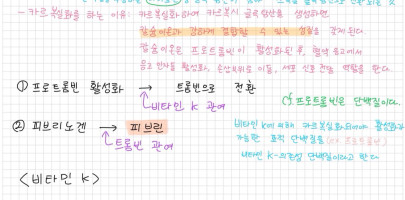 - 카르복실화를 하는 이유: 카르복실화하여 카르복시 글루탐산을 생성하면,
칼슘이온과 강하게 결합할 수 있는 성질을 갖게된다
칼슘이온은 프로트롬빈이 활성화된 후, 혈액 응고에서
응고 인자를 활성화, 손상부위로 이동, 세포 신호 전달 역할을 한다.
① 프로트롬빈 활성화 → 트롬빈으로 전환
비타민 K 관여
cf 프로트롬빈은 단백질이다.
② 피브리노겐 → 피브린
트롬빈 관여
비타민 K에 의해 카르복실화되어야 활성화가
가능한 표적 단백질을 (ex. 프로트롬빈)
비타민 K-의존성 단백질이라고 한다
<비타민 K>